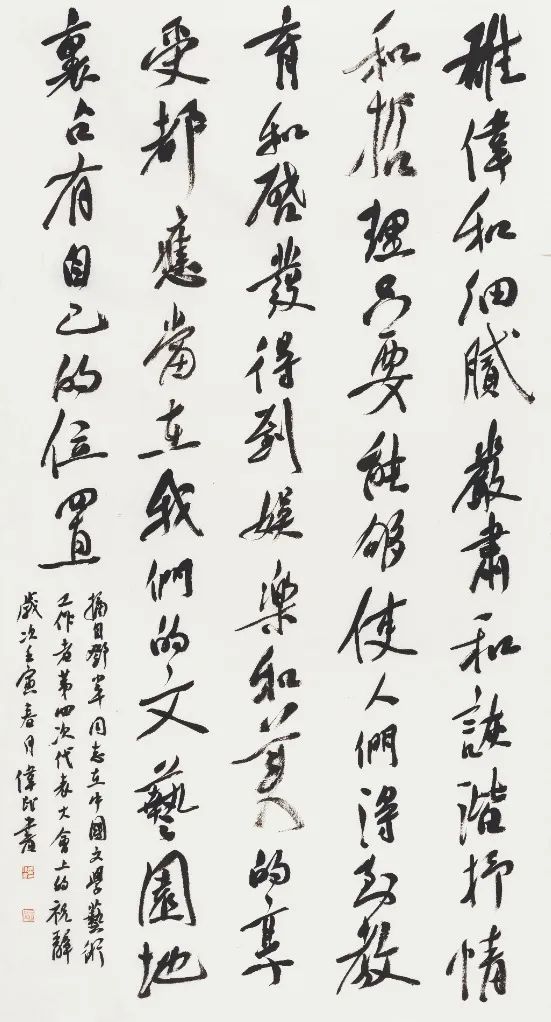 雄偉和細膩嚴肅和詼諧抒情
和哲理只要能够使人們得到教
育和啓發得到娛樂和美的享
受都應當在我們的文藝園地
裏占有自己的位置
摘自鄧小平同志在中國文學藝術
工作者第四次代表大會上的祝辭
歲次壬寅春月偉民書